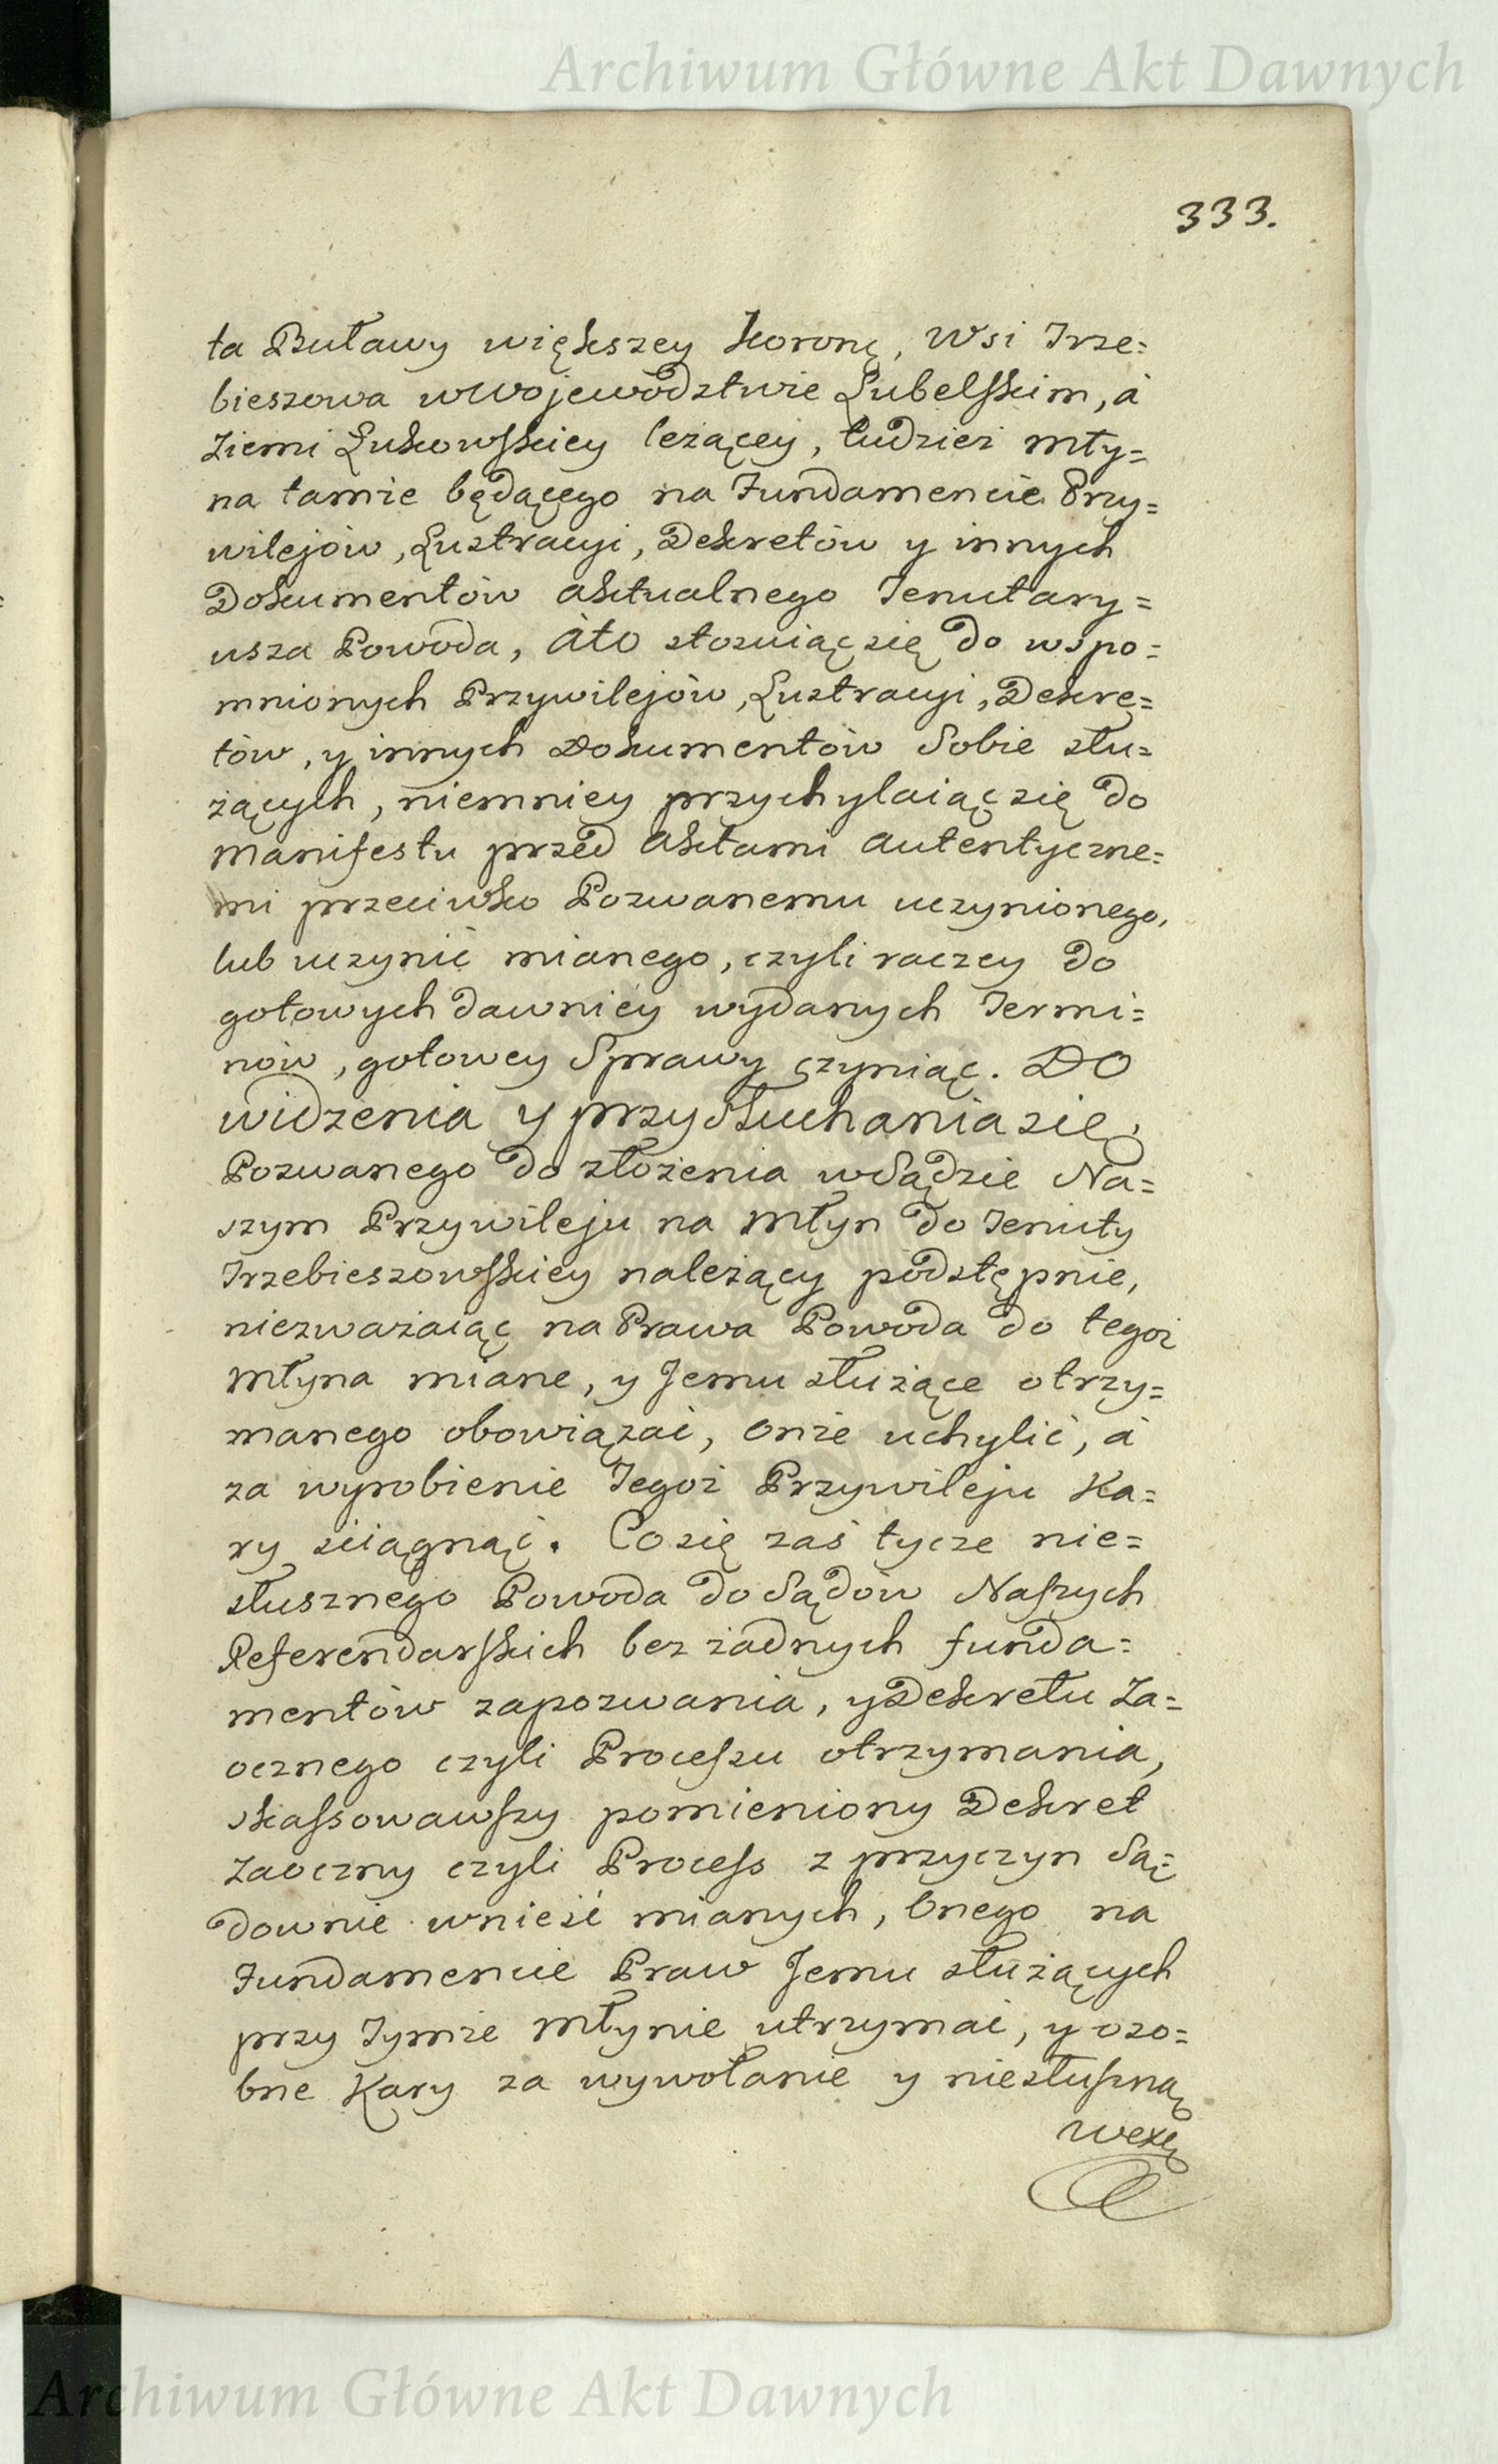 Archiwum Główne Akt Dawnych
333.
ta Buławy większey koronę, Wsi Trze=
bieszowa wWojewodztwie Lubelskim, á
Ziemi Łukowskiey leżącey, tudzież Mły=
na tamże będącego na Fundamencie Przy=
wilejów, Lustracyi, Dekretów y innych
Dokumentów aktualnego Tenutary=
usza Powoda, áto stosuiąc się do wspo=
mnionych Przywilejów, Lustracyi, Dekre=
tów, y innych Dokumentów Sobie słu=
żących, niemniey przychylaiąc się do
Manifestu przed Aktami autentyczne=
mi przeciwko Pozwanemu uczynionego,
lub uczynić mianego, czyli raczey do
gotowych dawniey wydanych Termi=
nów, gotowey Sprawy czyniąc. DO
widzenia y przysłuchania się,
Pozwanego do złożenia wSądzie Na=
szym Przywileju na Młyn do Tenuty
Trzebieszowskiey należący podstępnie,
niezważaiąc na Prawa Powoda do tegoż
Młyna miane, y Jemu służące otrzy=
manego obowiązać, Onże uchylić, á
za wyrobienie Tegoż Przywileju Ka=
ry sciągnąć. Co się zaś tycze nie=
słusznego Powoda do Sądów Naszych
Referendarskich bez żadnych funda=
mentów zapozwania, y Dekretu Za=
ocznego czyli Processu otrzymania,
skassowawszy pomieniony Dekret
Zaoczny czyli Process z przyczyn Są=
downie wnieść mianych, Onego na
Fundamencie Praw Jemu służących
przy Tymże Młynie utrzymać, y oso=
bne Kary za wywołanie y niesłuszną
wexę
Archiwum Główne Akt Dawnych